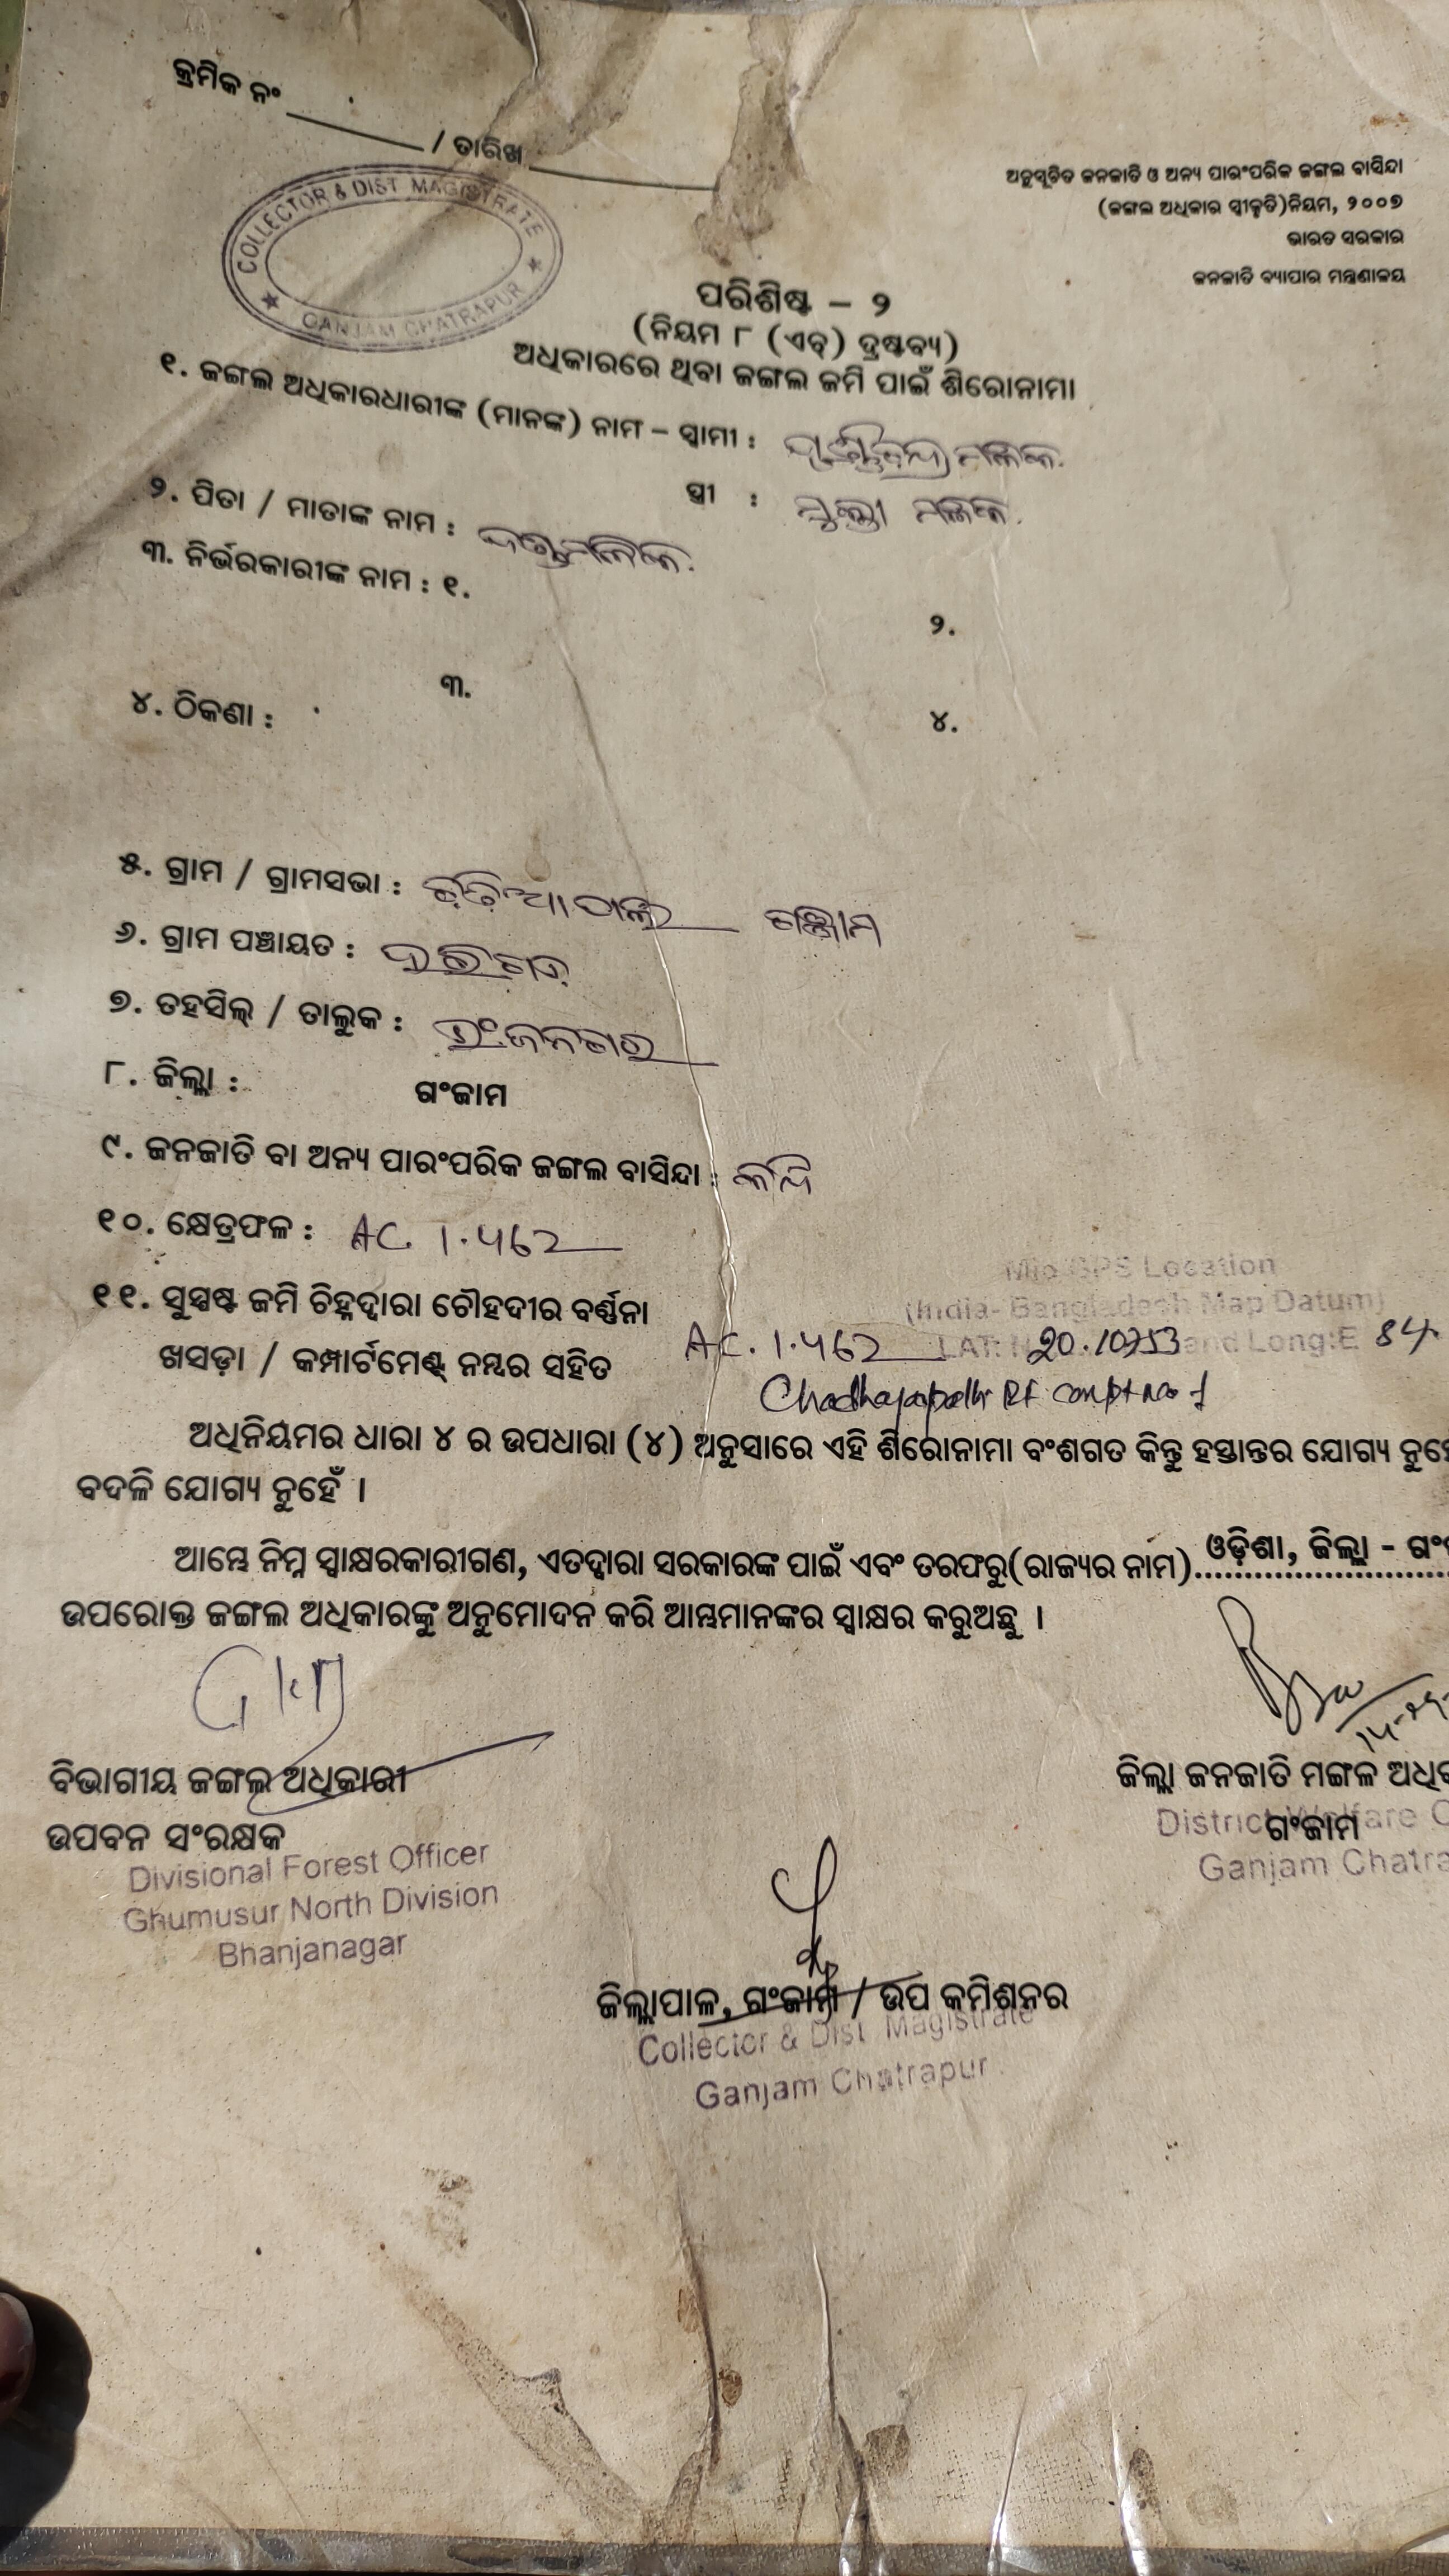 କ୍ରମିକ ନଂ / ତାରିଖ
COLLECTOR & DIST MAGISTRATE
GANJAM CHATRAPUR
ଅନୁସୂଚିତ ଜନଜାତି ଓ ଅନ୍ୟ ପାରଂପରିକ ଜଙ୍ଗଲ ବାସିନ୍ଦା
(ଜଙ୍ଗଲ ଅଧିକାର ସ୍ୱୀକୃତି)ନିୟମ, ୨୦୦୭
ଭାରତ ସରକାର
ଜନଜାତି ବ୍ୟାପାର ମନ୍ତ୍ରଣାଳୟ
ପରିଶିଷ୍ଟ – ୨
(ନିୟମ ୮ (ଏଚ୍) ଦ୍ରଷ୍ଟବ୍ୟ)
ଅଧିକାରରେ ଥିବା ଜଙ୍ଗଲ ଜମି ପାଇଁ ଶିରୋନାମା
୧. ଜଙ୍ଗଲ ଅଧିକାରଧାରୀଙ୍କ (ମାନଙ୍କ) ନାମ – ସ୍ୱାମୀ : ମଲିକ
ସ୍ତ୍ରୀ : ମଲିକ
୨. ପିତା / ମାତାଙ୍କ ନାମ : ମଲିକ
୩. ନିର୍ଭରକାରୀଙ୍କ ନାମ : ୧.
୨.
୩.
୪.
୪. ଠିକଣା :
୫. ଗ୍ରାମ / ଗ୍ରାମସଭା :
୬. ଗ୍ରାମ ପଞ୍ଚାୟତ :
୭. ତହସିଲ୍ / ତାଲୁକ : ଭଂଜନଗର
୮. ଜିଲ୍ଲା : ଗଂଜାମ
୯. ଜନଜାତି ବା ଅନ୍ୟ ପାରଂପରିକ ଜଙ୍ଗଲ ବାସିନ୍ଦା :
୧୦. କ୍ଷେତ୍ରଫଳ : AC. 1.462
୧୧. ସୁସ୍ପଷ୍ଟ ଜମି ଚିହ୍ନଦ୍ୱାରା ଚୌହଦୀର ବର୍ଣ୍ଣନା
GPS Location
(India- Bangladesh Map Datum)
ଖସଡ଼ା / କମ୍ପାର୍ଟମେଣ୍ଟ୍ ନମ୍ବର ସହିତ AC. 1.462 LAT: and Long:E 84
RF
ଅଧିନିୟମର ଧାରା ୪ ର ଉପଧାରା (୪) ଅନୁସାରେ ଏହି ଶିରୋନାମା ବଂଶଗତ କିନ୍ତୁ ହସ୍ତାନ୍ତର ଯୋଗ୍ୟ
ବଦଳି ଯୋଗ୍ୟ ନୁହେଁ ।
ଆମ୍ଭେ ନିମ୍ନ ସ୍ୱାକ୍ଷରକାରୀଗଣ, ଏତଦ୍ୱାରା ସରକାରଙ୍କ ପାଇଁ ଏବଂ ତରଫରୁ(ରାଜ୍ୟର ନାମ) ଓଡ଼ିଶା, ଜିଲ୍ଲା -
ଉପରୋକ୍ତ ଜଙ୍ଗଲ ଅଧିକାରଙ୍କୁ ଅନୁମୋଦନ କରି ଆମ୍ଭମାନଙ୍କର ସ୍ୱାକ୍ଷର କରୁଅଛୁ ।
ବିଭାଗୀୟ ଜଙ୍ଗଲ ଅଧିକାରୀ
ଉପବନ ସଂରକ୍ଷକ
Divisional Forest Officer
Ghumusur North Division
Bhanjanagar
ଜିଲ୍ଲା ଜନଜାତି ମଙ୍ଗଳ
ଗଂଜାମ
District Welfare
Ganjam
ଜିଲ୍ଲାପାଳ, ଗଂଜାମ / ଉପ କମିଶନର
Collector & Dist. Magistrate
Ganjam Chatrapur